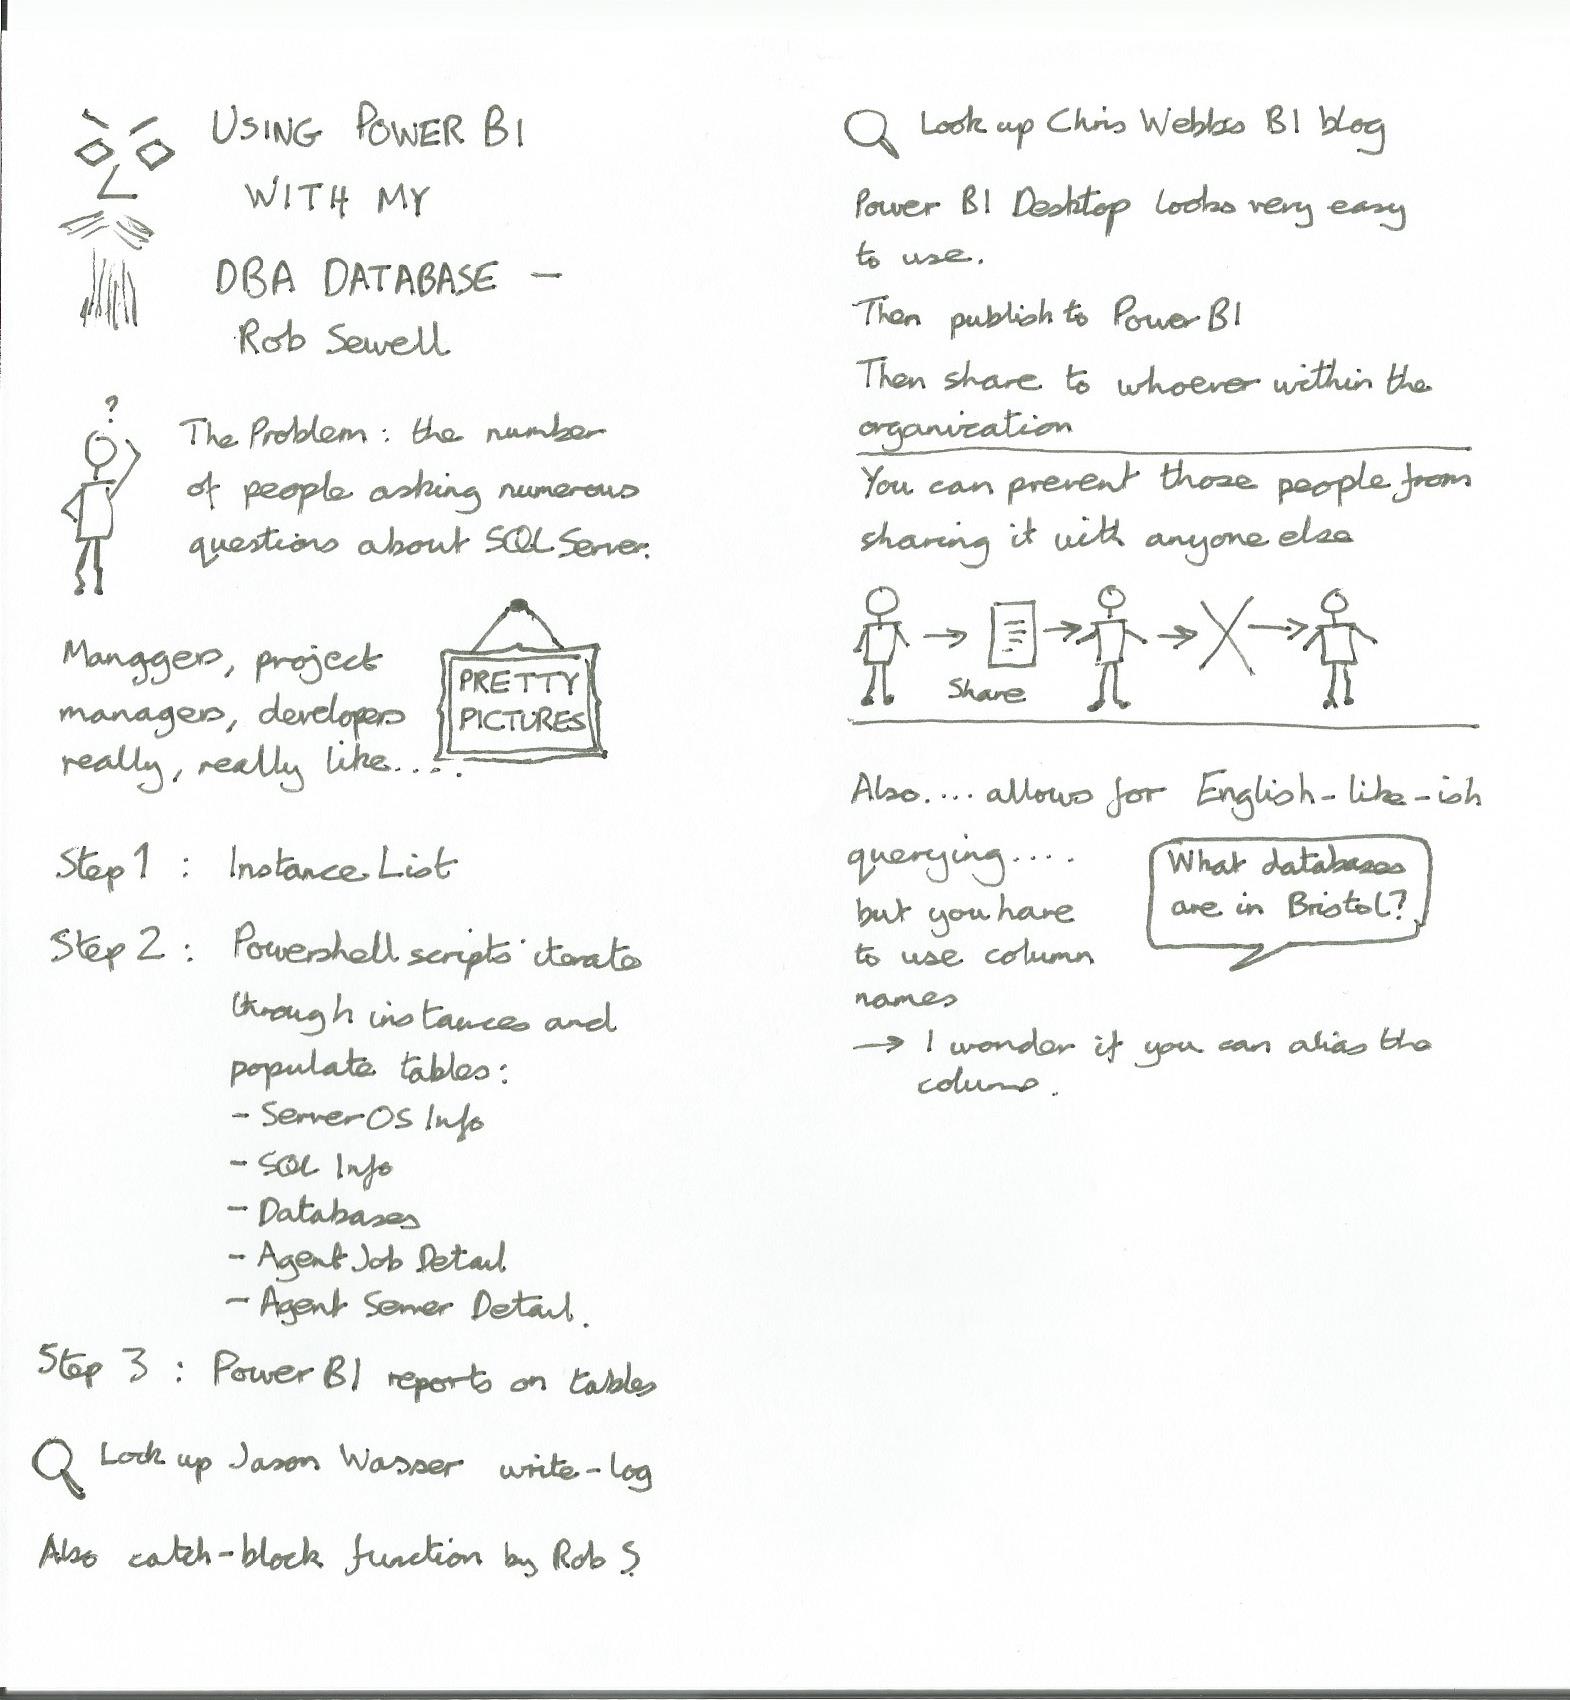 USING POWER BI
WITH MY
DBA DATABASE –
Rob Sewell
?
The Problem : the number
of people asking numerous
questions about SQL Server.
Managers, project
managers, developers
really, really like....
PRETTY
PICTURES
Step 1 : Instance List
Step 2 : Powershell scripts iterate
through instances and
populate tables:
- Server OS Info
- SQL Info
- Databases
- Agent Job Detail
- Agent Server Detail.
Step 3 : Power BI reports on tables
Look up Jason Wasser write-log
Also catch-block function by Rob S
Look up Chris Webbs BI blog
Power BI Desktop looks very easy
to use.
Then publish to Power BI
Then share to whoever within the
organization
You can prevent those people from
sharing it with anyone else
Share
Also.... allows for English-like-ish
querying....
but you have
to use column
names
What databases
are in Bristol?
→ I wonder if you can alias the
column.